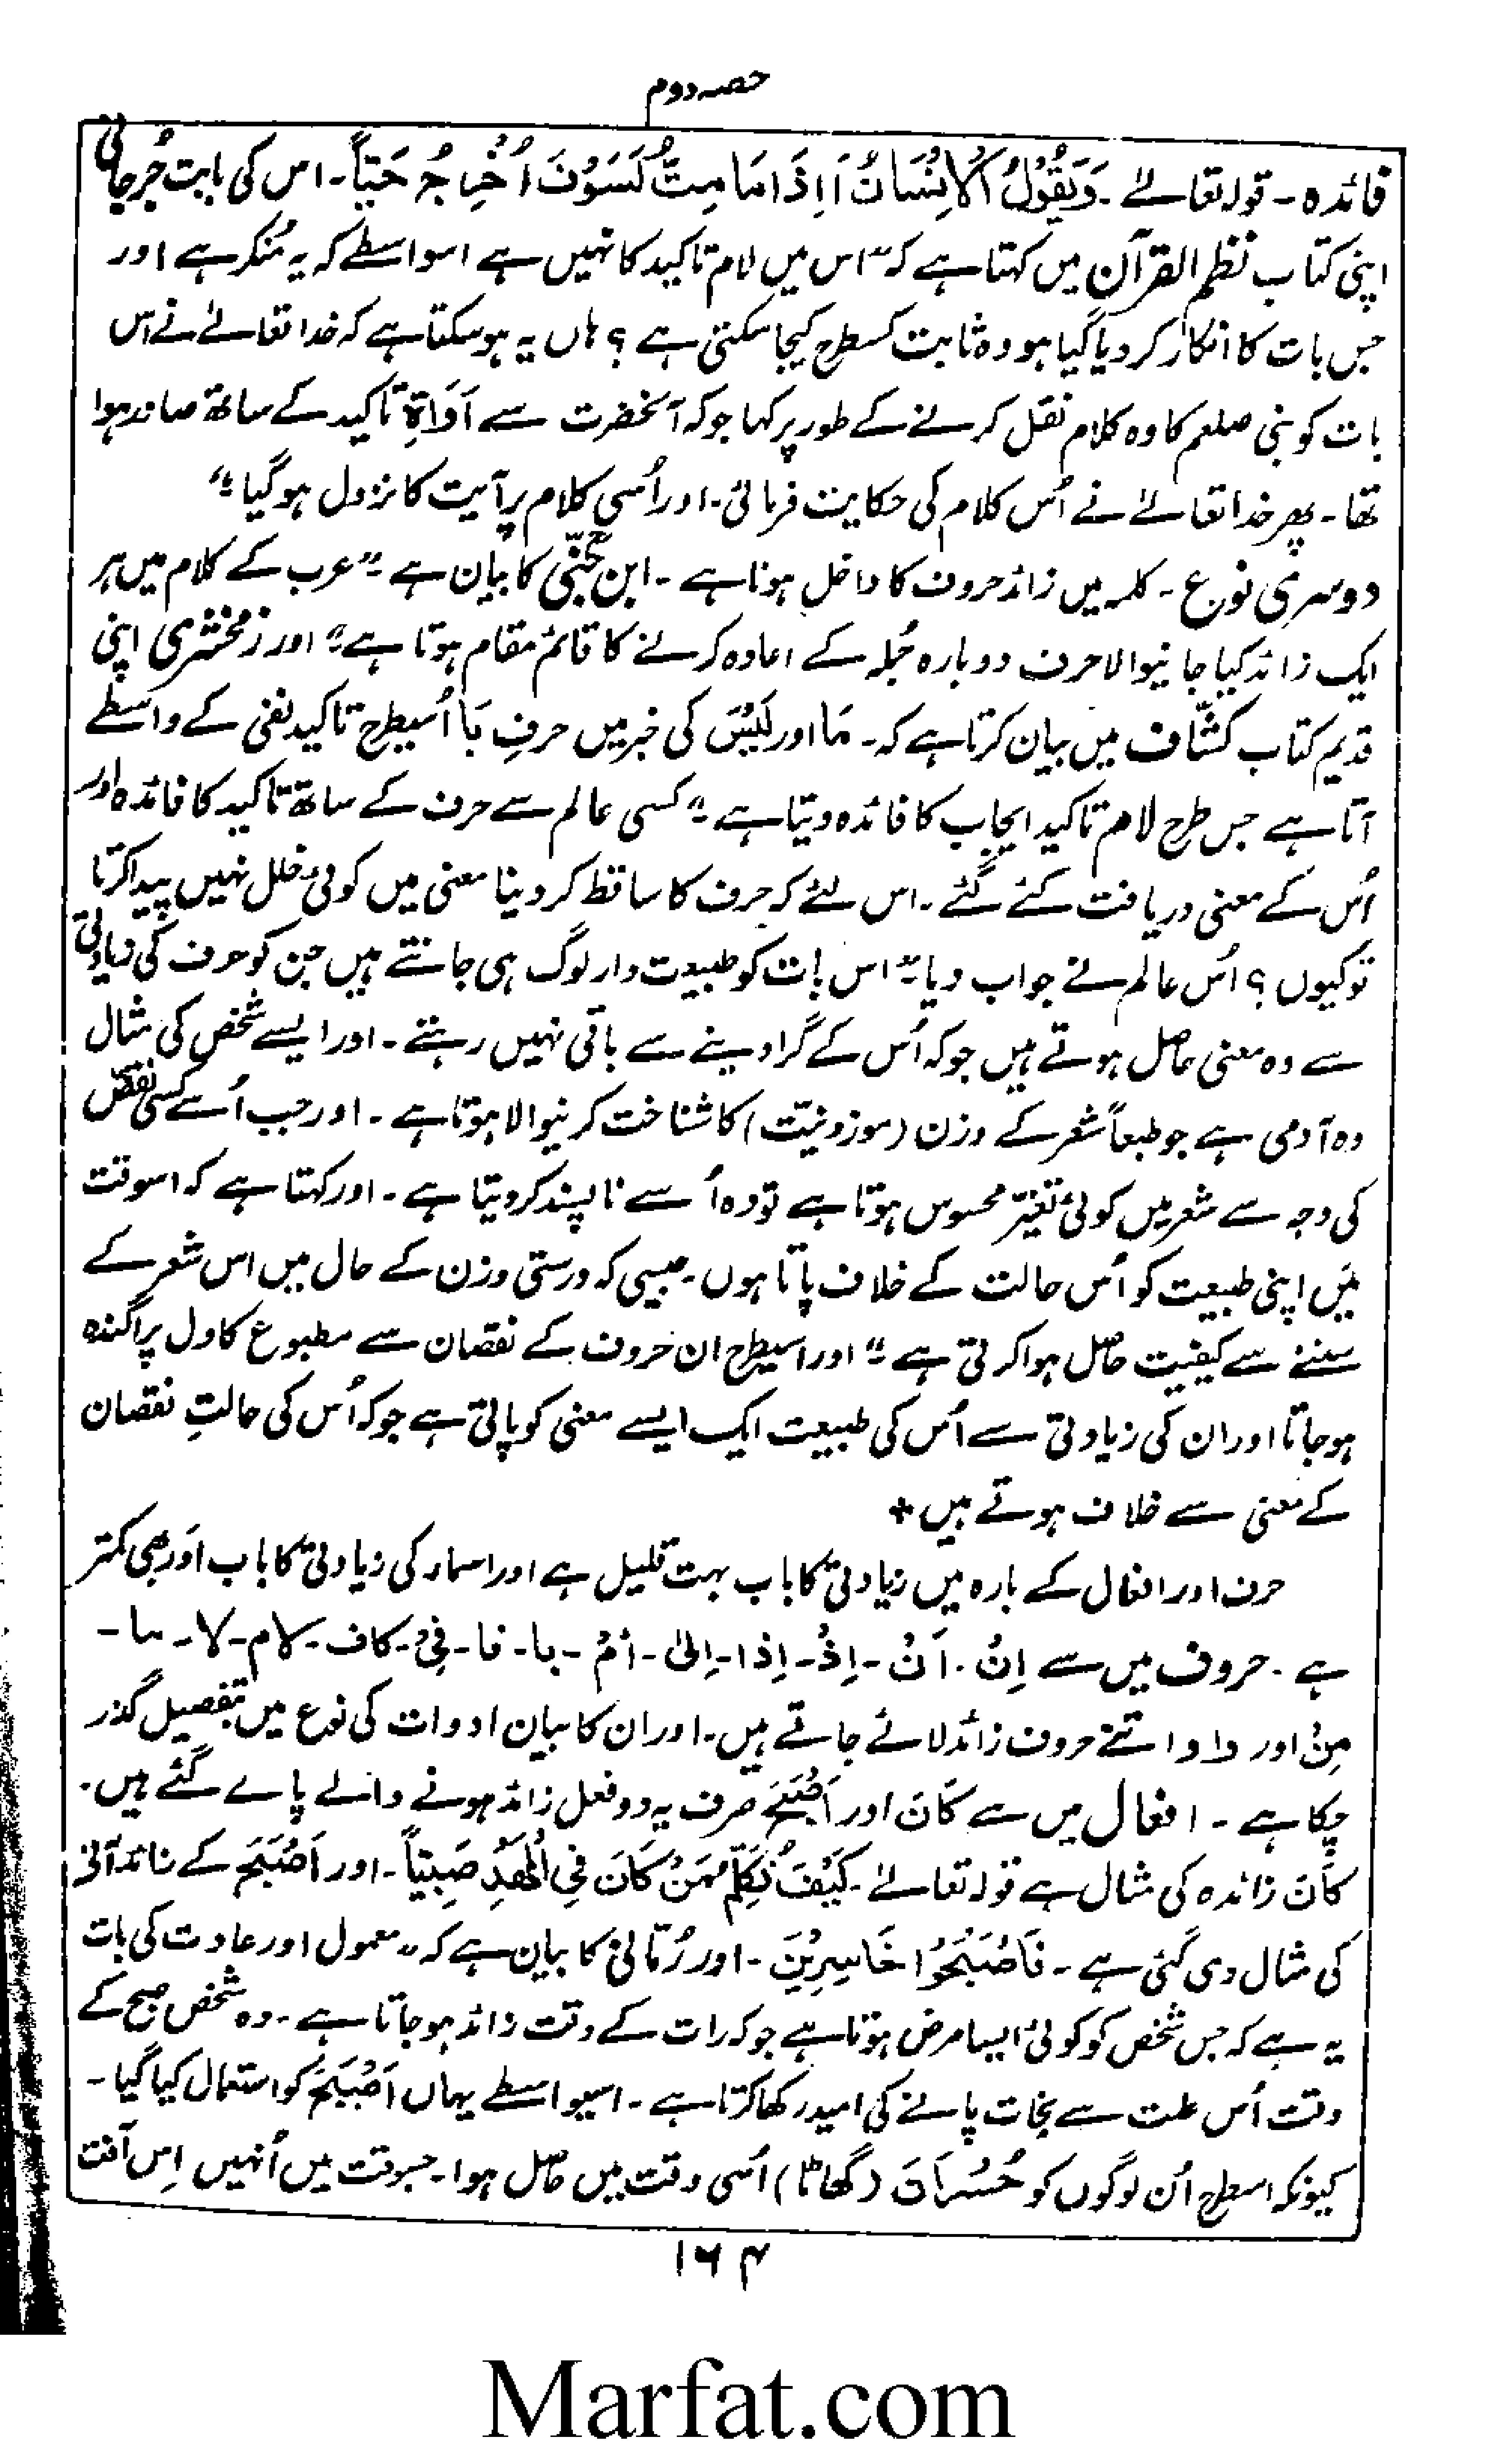 حصہ دوم
فائدہ - قولہ تعالےٰ - وَيَقُوْلُ الْاِنْسَانُ اَاِذَا مَا مِتُّ لَسَوْفَ اُخْرَجُ حَيّاً - اس کی بابت جُرجانی
اپنی کتاب نظم القرآن میں کہتا ہے کہ " اس میں لام تاکید کا نہیں ہے اسواسطے کہ یہ مُنکر ہے اور
جس بات کا انکار کر دیا گیا ہو وہ ثابت کسطرح کیجا سکتی ہے ؟ ہاں یہ ہو سکتا ہے کہ خدا تعالےٰ نے اس
بات کو نبی صلعم کا وہ کلام نقل کرنے کے طور پر کہا جو کہ آنحضرت سے اَدَاةِ تاکید کے ساتھ صادر ہوا
تھا - پھر خدا تعالےٰ نے اُس کلام کی حکایت فرمائی - اور اُسی کلام پر آیت کا نزول ہو گیا "
دوسری نوع - کلمہ میں زائد حروف کا داخل ہونا ہے - ابن جنّی کا بیان ہے " عرب کے کلام میں ہر
ایک زائد کیا جانیوالا حرف دوبارہ جُملہ کے اعادہ کرنے کا قائم مقام ہوتا ہے " اور زمخشری اپنی
قدیم کتاب کشّاف میں بیان کرتا ہے کہ - مَا اور لَيْسَ کی خبر میں حرفِ بَا اُسیطرح تاکید نفی کے واسطے
آتا ہے جس طرح لام تاکید ایجاب کا فائدہ دیتا ہے " کسی عالم سے حرف کے ساتھ تاکید کا فائدہ اور
اُس کے معنی دریافت کئے گئے - اس لئے کہ حرف کا ساقط کر دینا معنی میں کوئی خلل نہیں پیدا کرتا
تو کیوں ؟ اُس عالم نے جواب دیا " اس بات کو طبیعت دار لوگ ہی جانتے ہیں جن کو حرف کی زیادتی
سے وہ معنی حاصل ہوتے ہیں جو کہ اُس کے گرا دینے سے باقی نہیں رہتے - اور ایسے شخص کی مثال
وہ آدمی ہے جو طبعاً شعر کے وزن (موزونیّت) کا شناخت کرنیوالا ہوتا ہے - اور جب اُسے کسی نقص
کی وجہ سے شعر میں کوئی تغیّر محسوس ہوتا ہے تو وہ اُسے نا پسند کر دیتا ہے - اور کہتا ہے کہ اسوقت
میں اپنی طبیعت کو اُس حالت کے خلاف پاتا ہوں - جیسی کہ درستی وزن کے حال میں اس شعر کے
سننے سے کیفیت حاصل ہوا کرتی ہے " اور اسیطرح ان حروف کے نقصان سے مطبوع کا دل پراگندہ
ہو جاتا اور ان کی زیادتی سے اُس کی طبیعت ایک ایسے معنی کو پاتی ہے جو کہ اُس کی حالتِ نقصان
کے معنی سے خلاف ہوتے ہیں +
حرف اور افعال کے بارہ میں زیادتی کا باب بہت قلیل ہے اور اسماء کی زیادتی کا باب اَور بھی کمتر
ہے - حروف میں سے اِنْ - اَنْ - اِذْ - اِذا - اِلیٰ - اَمْ - با - فا - فِيْ - کاف - لام - لا - ما -
مِنْ اور واو اتنے حروف زائد لائے جاتے ہیں - اور ان کا بیان ادوات کی نوع میں بتفصیل گذر
چکا ہے - افعال میں سے كَانَ اور اَصْبَحَ صرف یہ دو فعل زائد ہونے والے پائے گئے ہیں -
كَانَ زائدہ کی مثال ہے قولہ تعالےٰ - كَيْفَ نُكَلِّمُ مَنْ كَانَ فِي الْمَهْدِ صَبِيّاً - اور اَصْبَحَ کے زائد آنے
کی مثال دی گئی ہے - فَاَصْبَحُوْا خَاسِرِيْنَ - اور رُمّانی کا بیان ہے کہ " معمول اور عادت کی بات
یہ ہے کہ جس شخص کو کوئی ایسا مرض ہوتا ہے جو کہ رات کے وقت زائد ہو جاتا ہے - وہ شخص صبح کے
وقت اُس علت سے نجات پانے کی امید رکھا کرتا ہے - اسیواسطے یہاں اَصْبَحَ کو استعمال کیا گیا -
کیونکہ اسطرح اُن لوگوں کو خُسْرَان (گھاٹا) اُسی وقت میں حاصل ہوا - جسوقت میں اُنہیں اِس آفت
۱۶۴
Marfat.com